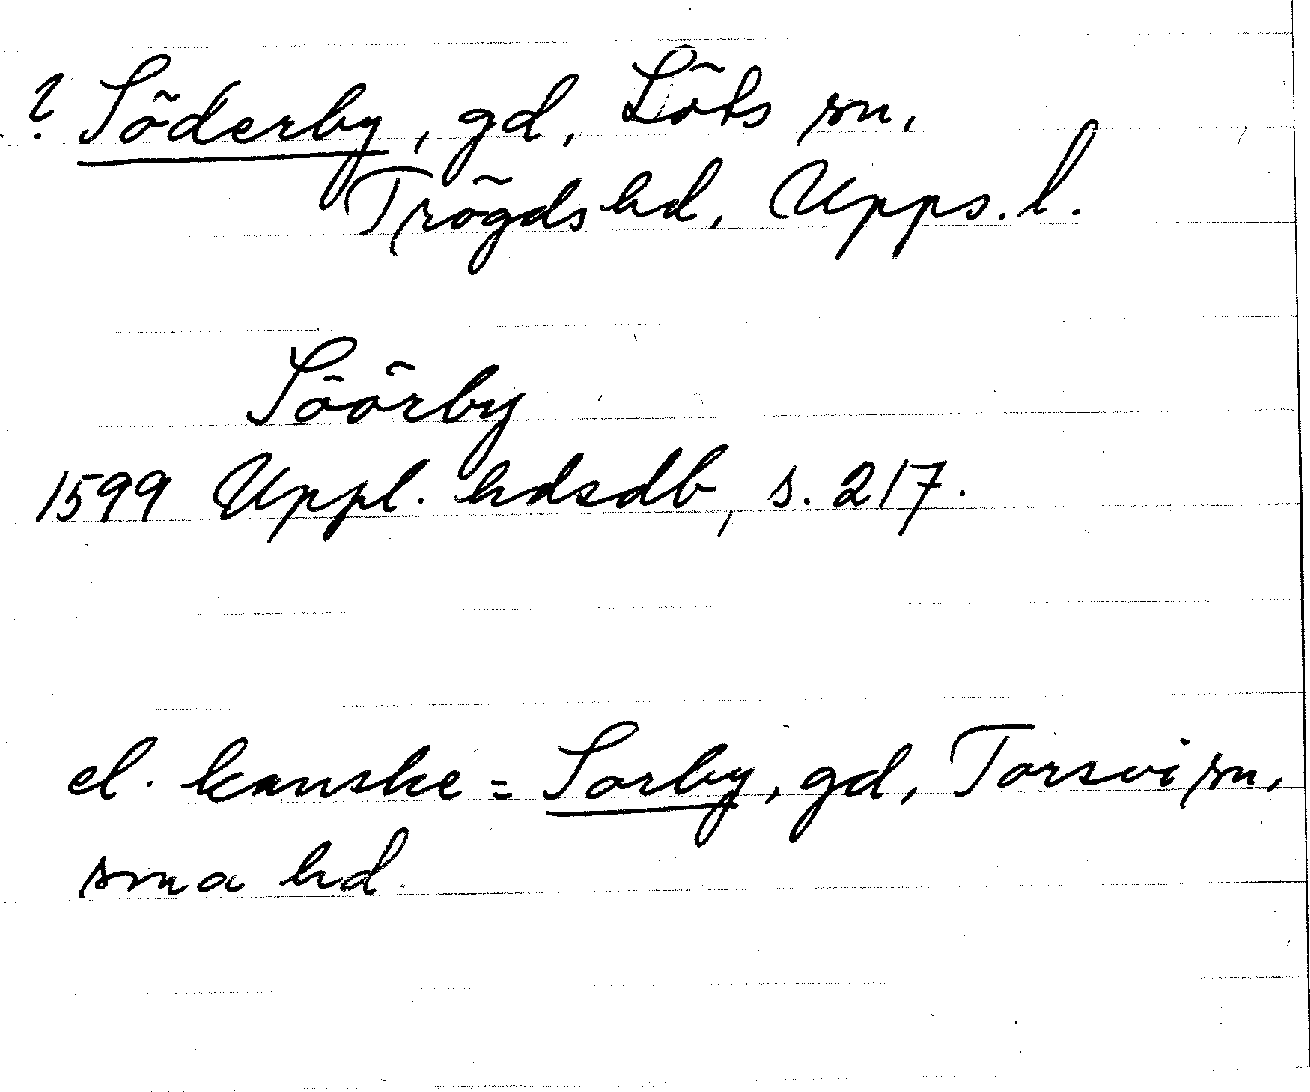 ? Söderby, gd, Löts sn,
Trögds hd, Upps. l.
Söörby
1599 Uppl. hdsdb, s. 217.
el. kanske = Sorby, gd, Torsvi sn,
sma hd.